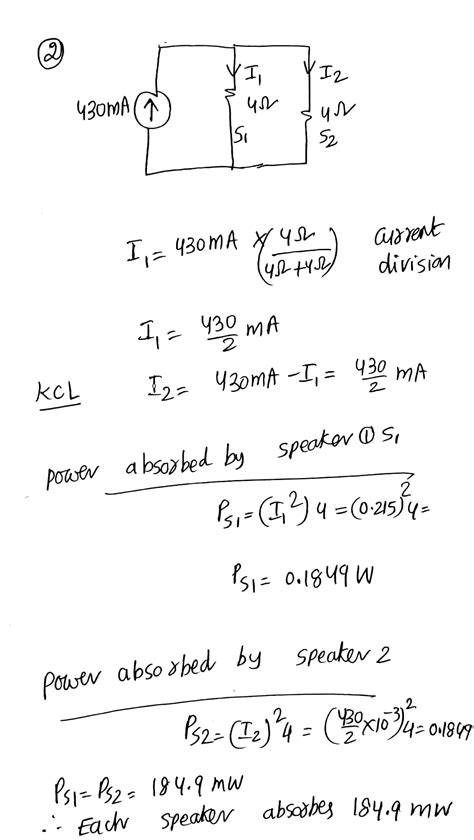 ②
I₁ I₂
430mA ↑ 4Ω 4Ω
S₁ S₂
I₁ = 430mA × (4Ω / (4Ω+4Ω)) current division
I₁ = 430/2 mA
KCL I₂ = 430mA - I₁ = 430/2 mA
power absorbed by speaker ① S₁
P_S₁ = (I₁²) 4 = (0.215)² 4 =
P_S₁ = 0.1849 W
power absorbed by speaker 2
P_S2 = (I₂)² 4 = (430/2 × 10⁻³)² 4 = 0.1849
P_S₁ = P_S₂ = 184.9 mW
∴ Each speaker absorbes 184.9 mW